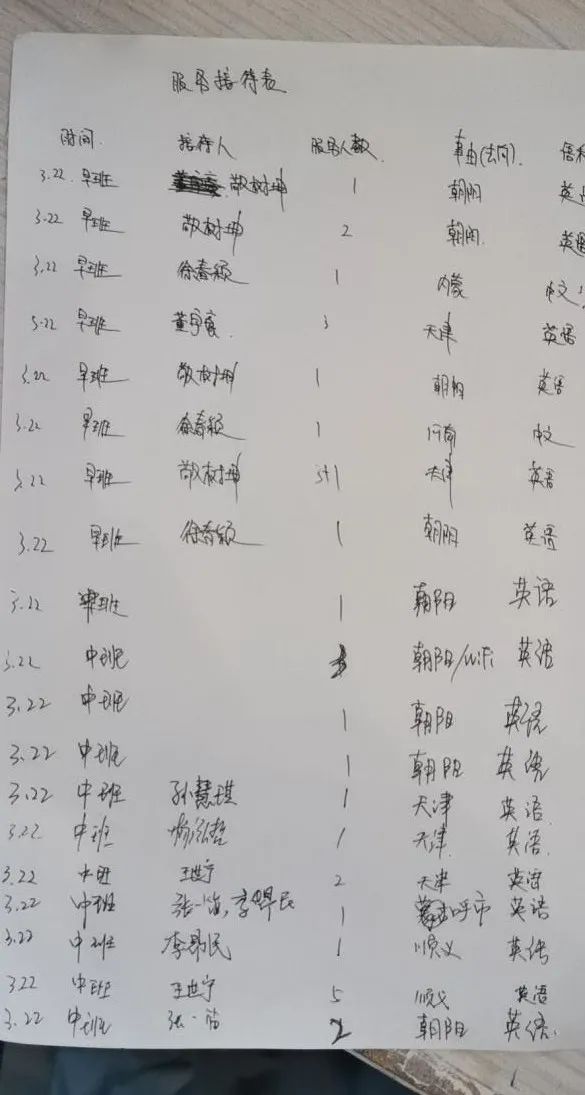 服务接待表
时间 接待人 服务人数 事由(去向) 语种
3.22 早班 敬树坤 1 朝阳 英
3.22 早班 敬树坤 2 朝阳 英
3.22 早班 徐春颖 1 内蒙 中文
3.22 早班 董宇 3 天津 英语
3.22 早班 敬树坤 1 朝阳 英语
3.22 早班 徐春颖 1 河南 中文
3.22 早班 敬树坤 3+1 天津 英语
3.22 早班 徐春颖 1 朝阳 英语
3.22 班 1 朝阳 英语
3.22 中班 朝阳/WiFi 英语
3.22 中班 1 朝阳 英语
3.22 中班 1 朝阳 英语
3.22 中班 孙慧琪 1 天津 英语
3.22 中班 1 天津 英语
3.22 中班 王世宁 2 天津 英语
3.22 中班 张一笛, 李昂民 1 呼市 英语
3.22 中班 李昂民 1 顺义 英语
3.22 中班 王世宁 5 顺义 英语
3.22 中班 张一笛 2 朝阳 英语